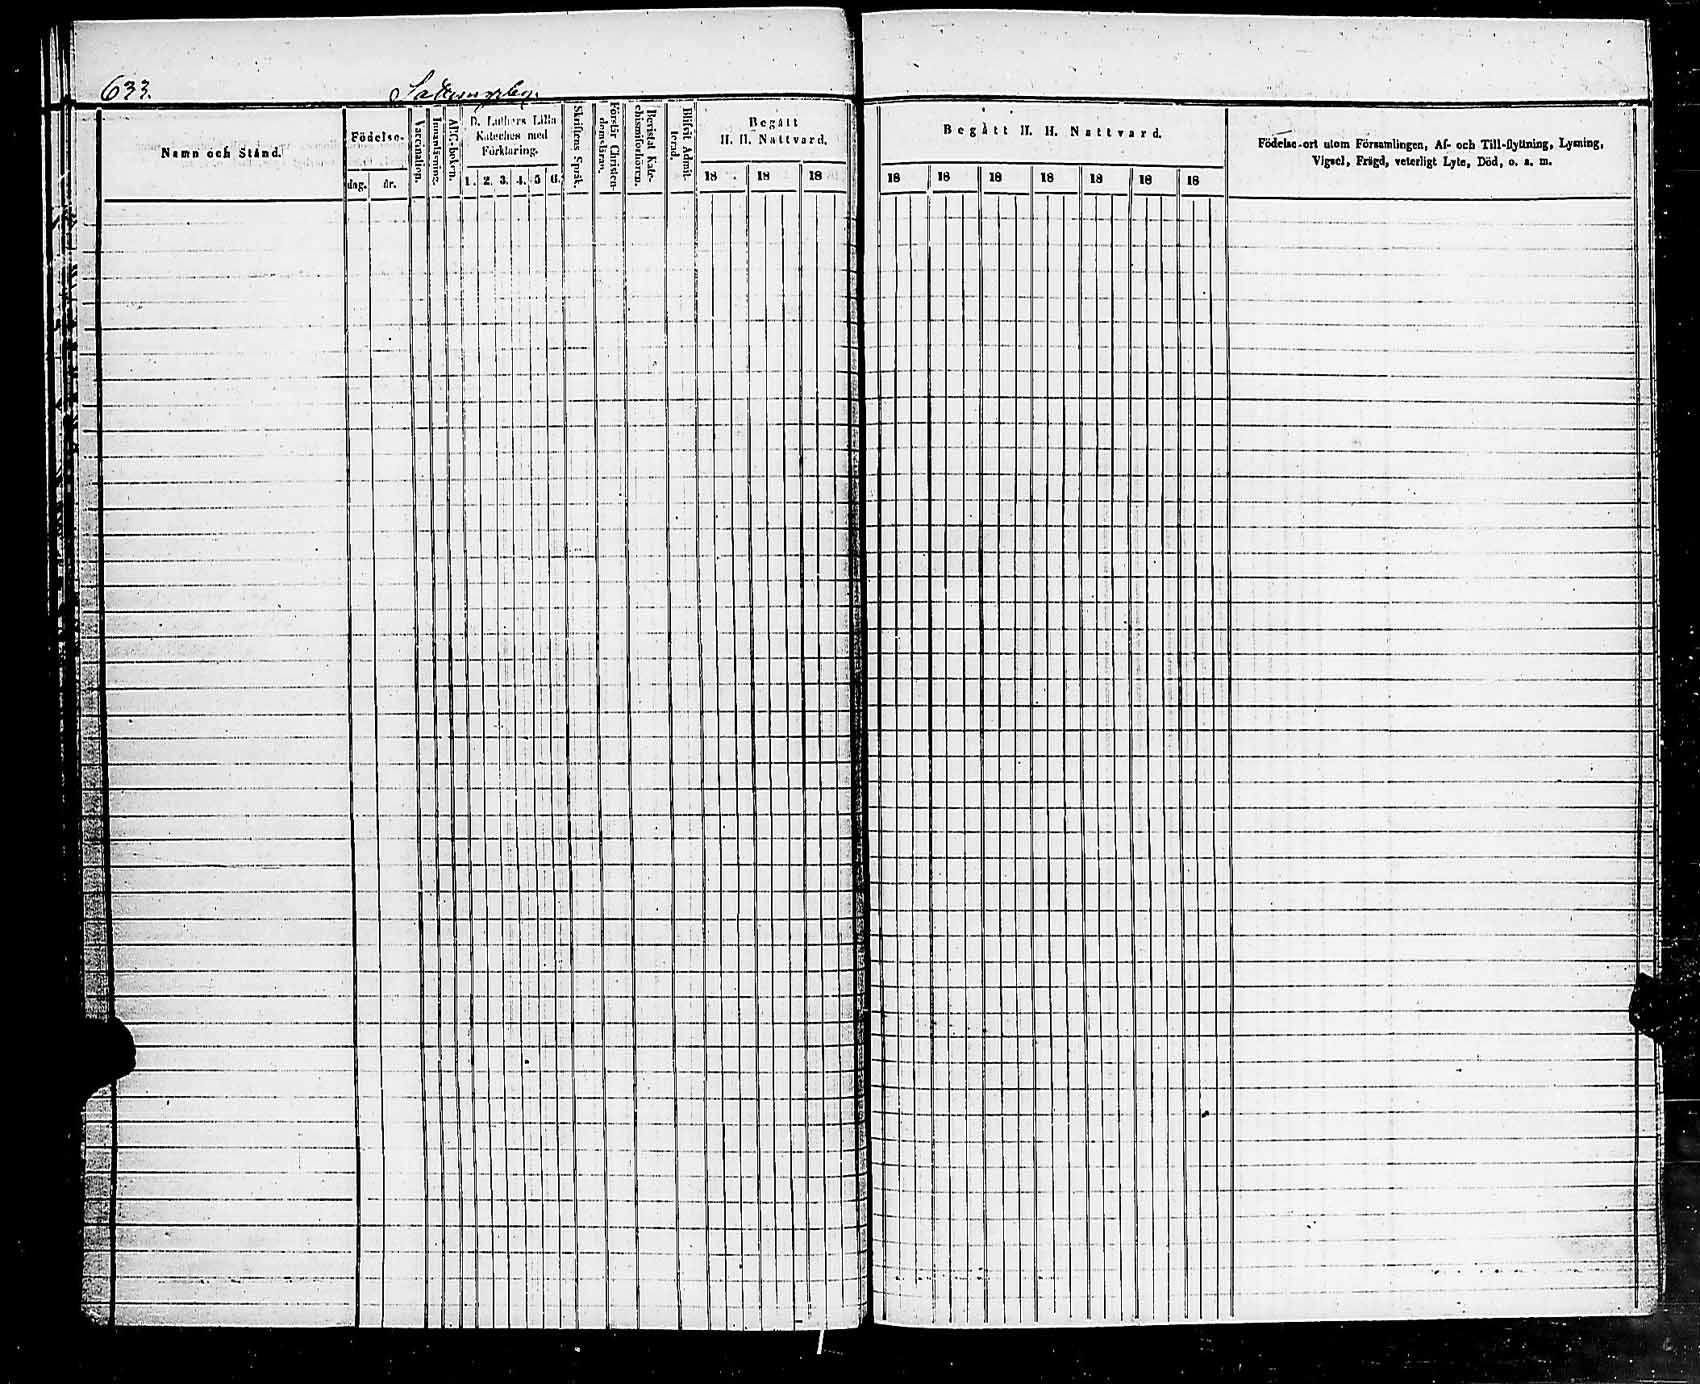 633.
Namn och Stånd.
Födelse-
dag. år.
Vaccination.
Innanläsning.
ABC-boken.
D. Luthers Lilla
Kateches med
Förklaring.
1. 2. 3. 4. 5 6.
Skriftens Språk.
Förstår Christen-
domsläran.
Bevistat Kate-
chismiförhören.
Blifvit Admit-
terad.
Begått
H. H. Nattvard.
18 18 18
Begått H. H. Nattvard.
18 18 18 18 18 18 18
Födelse-ort utom Församlingen, Af- och Till-flyttning, Lysning,
Vigsel, Frägd, veterligt Lyte, Död, o. s. m.